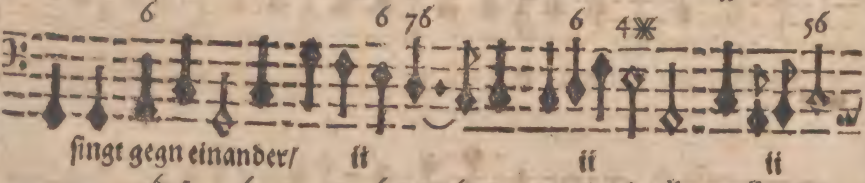 6 6 76 6 4※ 56
ſingt gegn einander/ ii ii ii